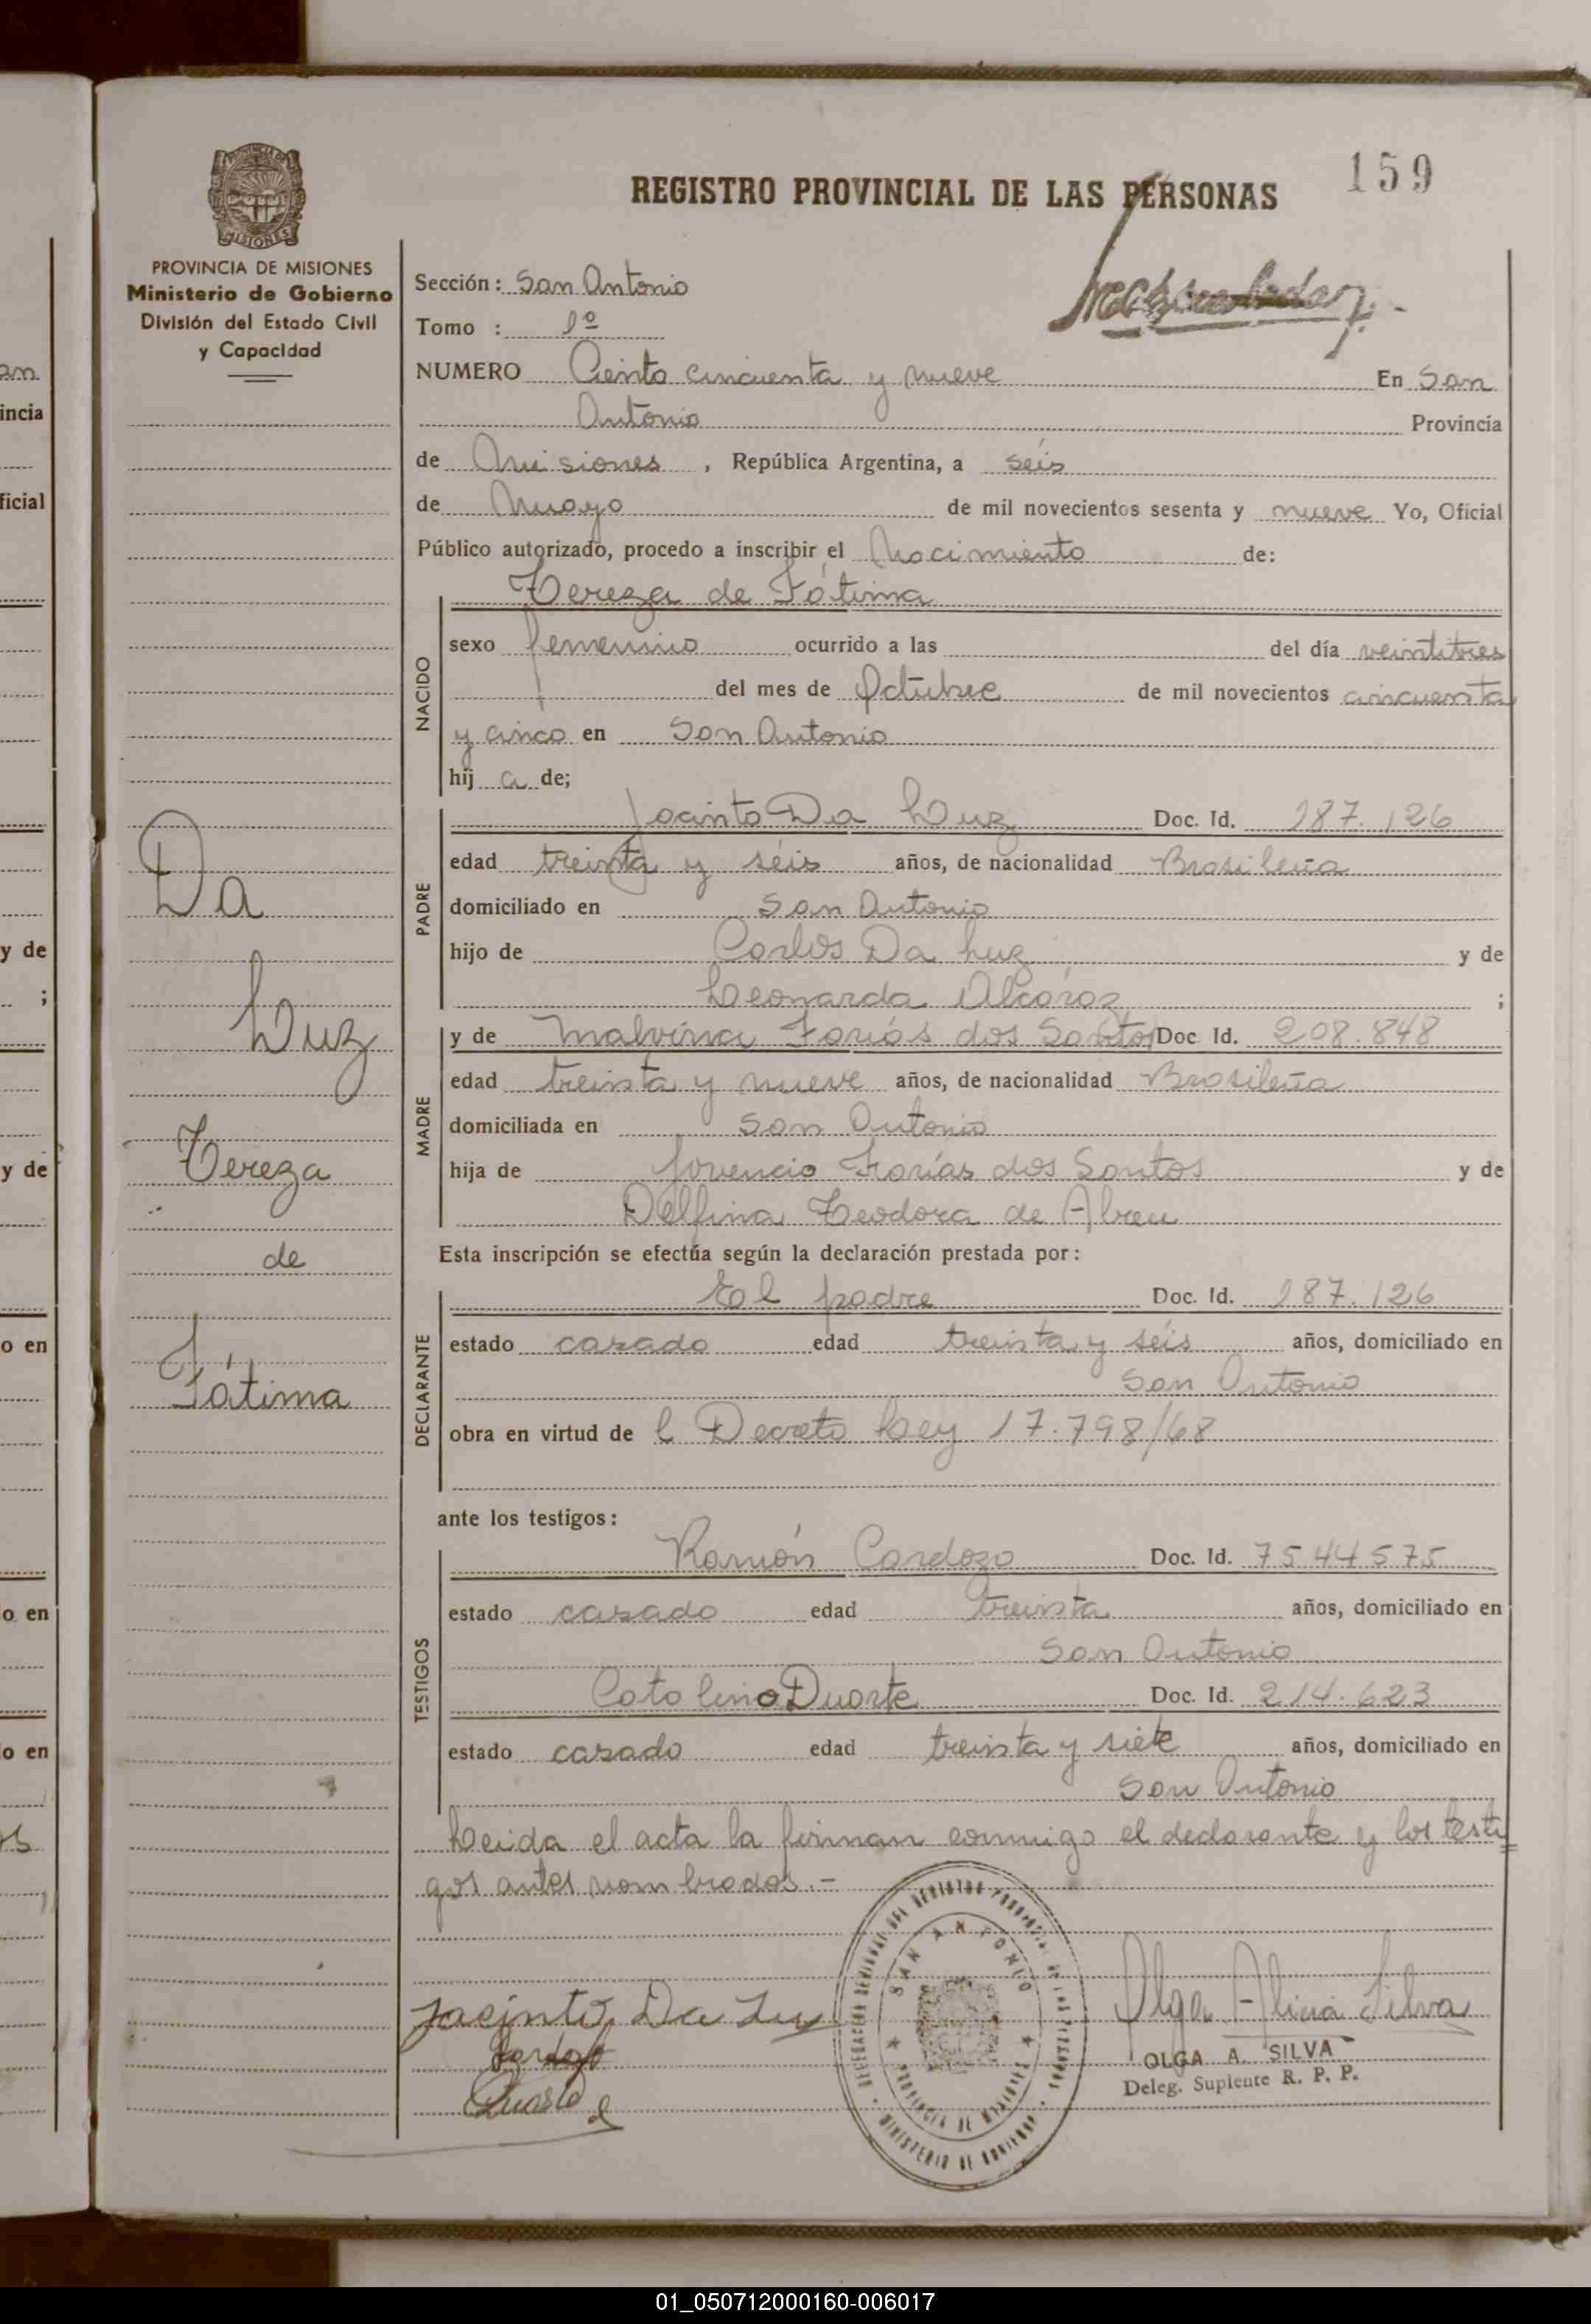 159
REGISTRO PROVINCIAL DE LAS PERSONAS
PROVINCIA DE MISIONES
Ministerio de Gobierno
División del Estado Civil
y Capacidad
Sección: San Antonio
Tomo : 1º
NUMERO Ciento cincuenta y nueve En San
Antonio Provincia
de Misiones, República Argentina, a seis
de Mayo de mil novecientos sesenta y nueve Yo, Oficial
Público autorizado, procedo a inscribir el Nacimiento de:
Tereza de Fátima
NACIDO
sexo femenino ocurrido a las del día veintitres
del mes de Octubre de mil novecientos cincuenta
y cinco en San Antonio
hij a de;
PADRE
Jacinto Da Luz Doc. Id. 187.126
edad treinta y séis años, de nacionalidad Brasileña
domiciliado en San Antonio
hijo de Carlos Da Luz y de
Leonarda Alcaráz ;
MADRE
y de Malvina Farías dos Santos Doc Id. 208.848
edad treinta y nueve años, de nacionalidad Brasileña
domiciliada en San Antonio
hija de Jovencio Farías dos Santos y de
Delfina Teodora de Abreu
Esta inscripción se efectúa según la declaración prestada por:
DECLARANTE
El padre Doc. Id. 187.126
estado casado edad treinta y séis años, domiciliado en
San Antonio
obra en virtud de l Decreto Ley 17.798/68
ante los testigos:
TESTIGOS
Ramón Cardozo Doc. Id. 7544575
estado casado edad treinta años, domiciliado en
San Antonio
Catalino Duarte Doc. Id. 214.623
estado casado edad treinta y siete años, domiciliado en
San Antonio
Leida el acta la firman conmigo el declarante y los testi
gos antes nombrados.-
Da
Luz
Tereza
de
Fátima
Jacinto Da Luz
Duarte
Olga Alicia Silva
OLGA A. SILVA
Deleg. Suplente R. P. P.
SAN ANTONIO
PROVINCIA DE MISIONES
MINISTERIO DE GOBIERNO
an
incia
ficial
y de
;
y de
o en
o en
o en
01_050712000160-006017